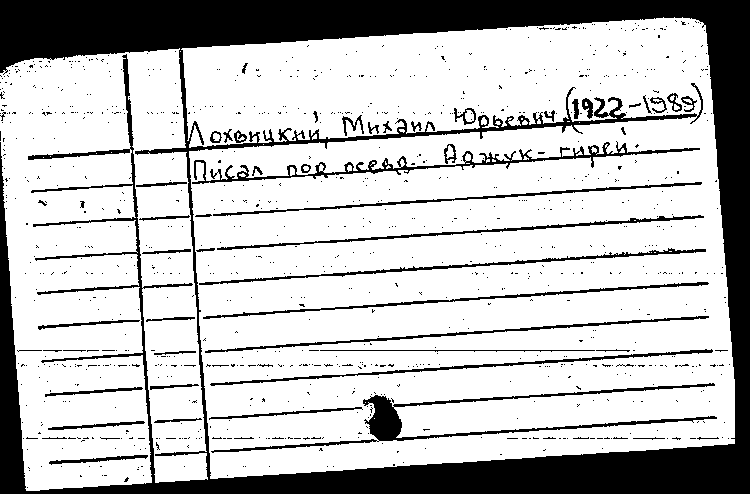 Лохвицкий, Михаил Юрьевич, (1922-1989)
Писал под псевд. Аджук-гирей.